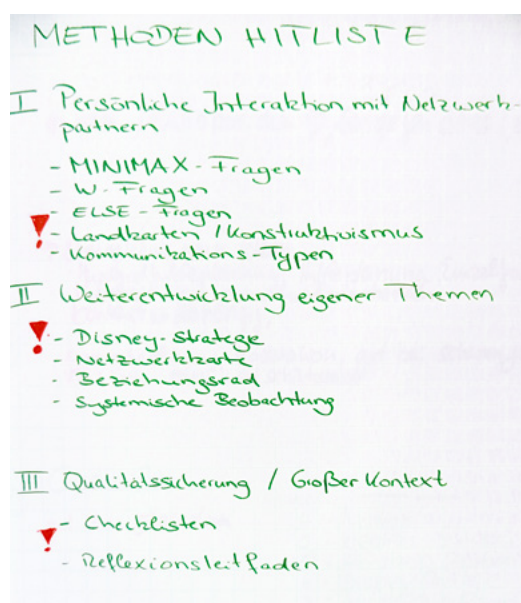 METHODEN HITLISTE
I Persönliche Interaktion mit Netzwerk-
partnern
- MINIMAX - Fragen
- W - Fragen
- ELSE - Fragen
- Landkarten / Konstruktivismus
! - Kommunikations - Typen
II Weiterentwicklung eigener Themen
! - Disney - Stratege
- Netzwerkkarte
- Beziehungsrad
- Systemische Beobachtung
III Qualitätssicherung / Großer Kontext
- Checklisten
!
- Reflexionsleitfaden